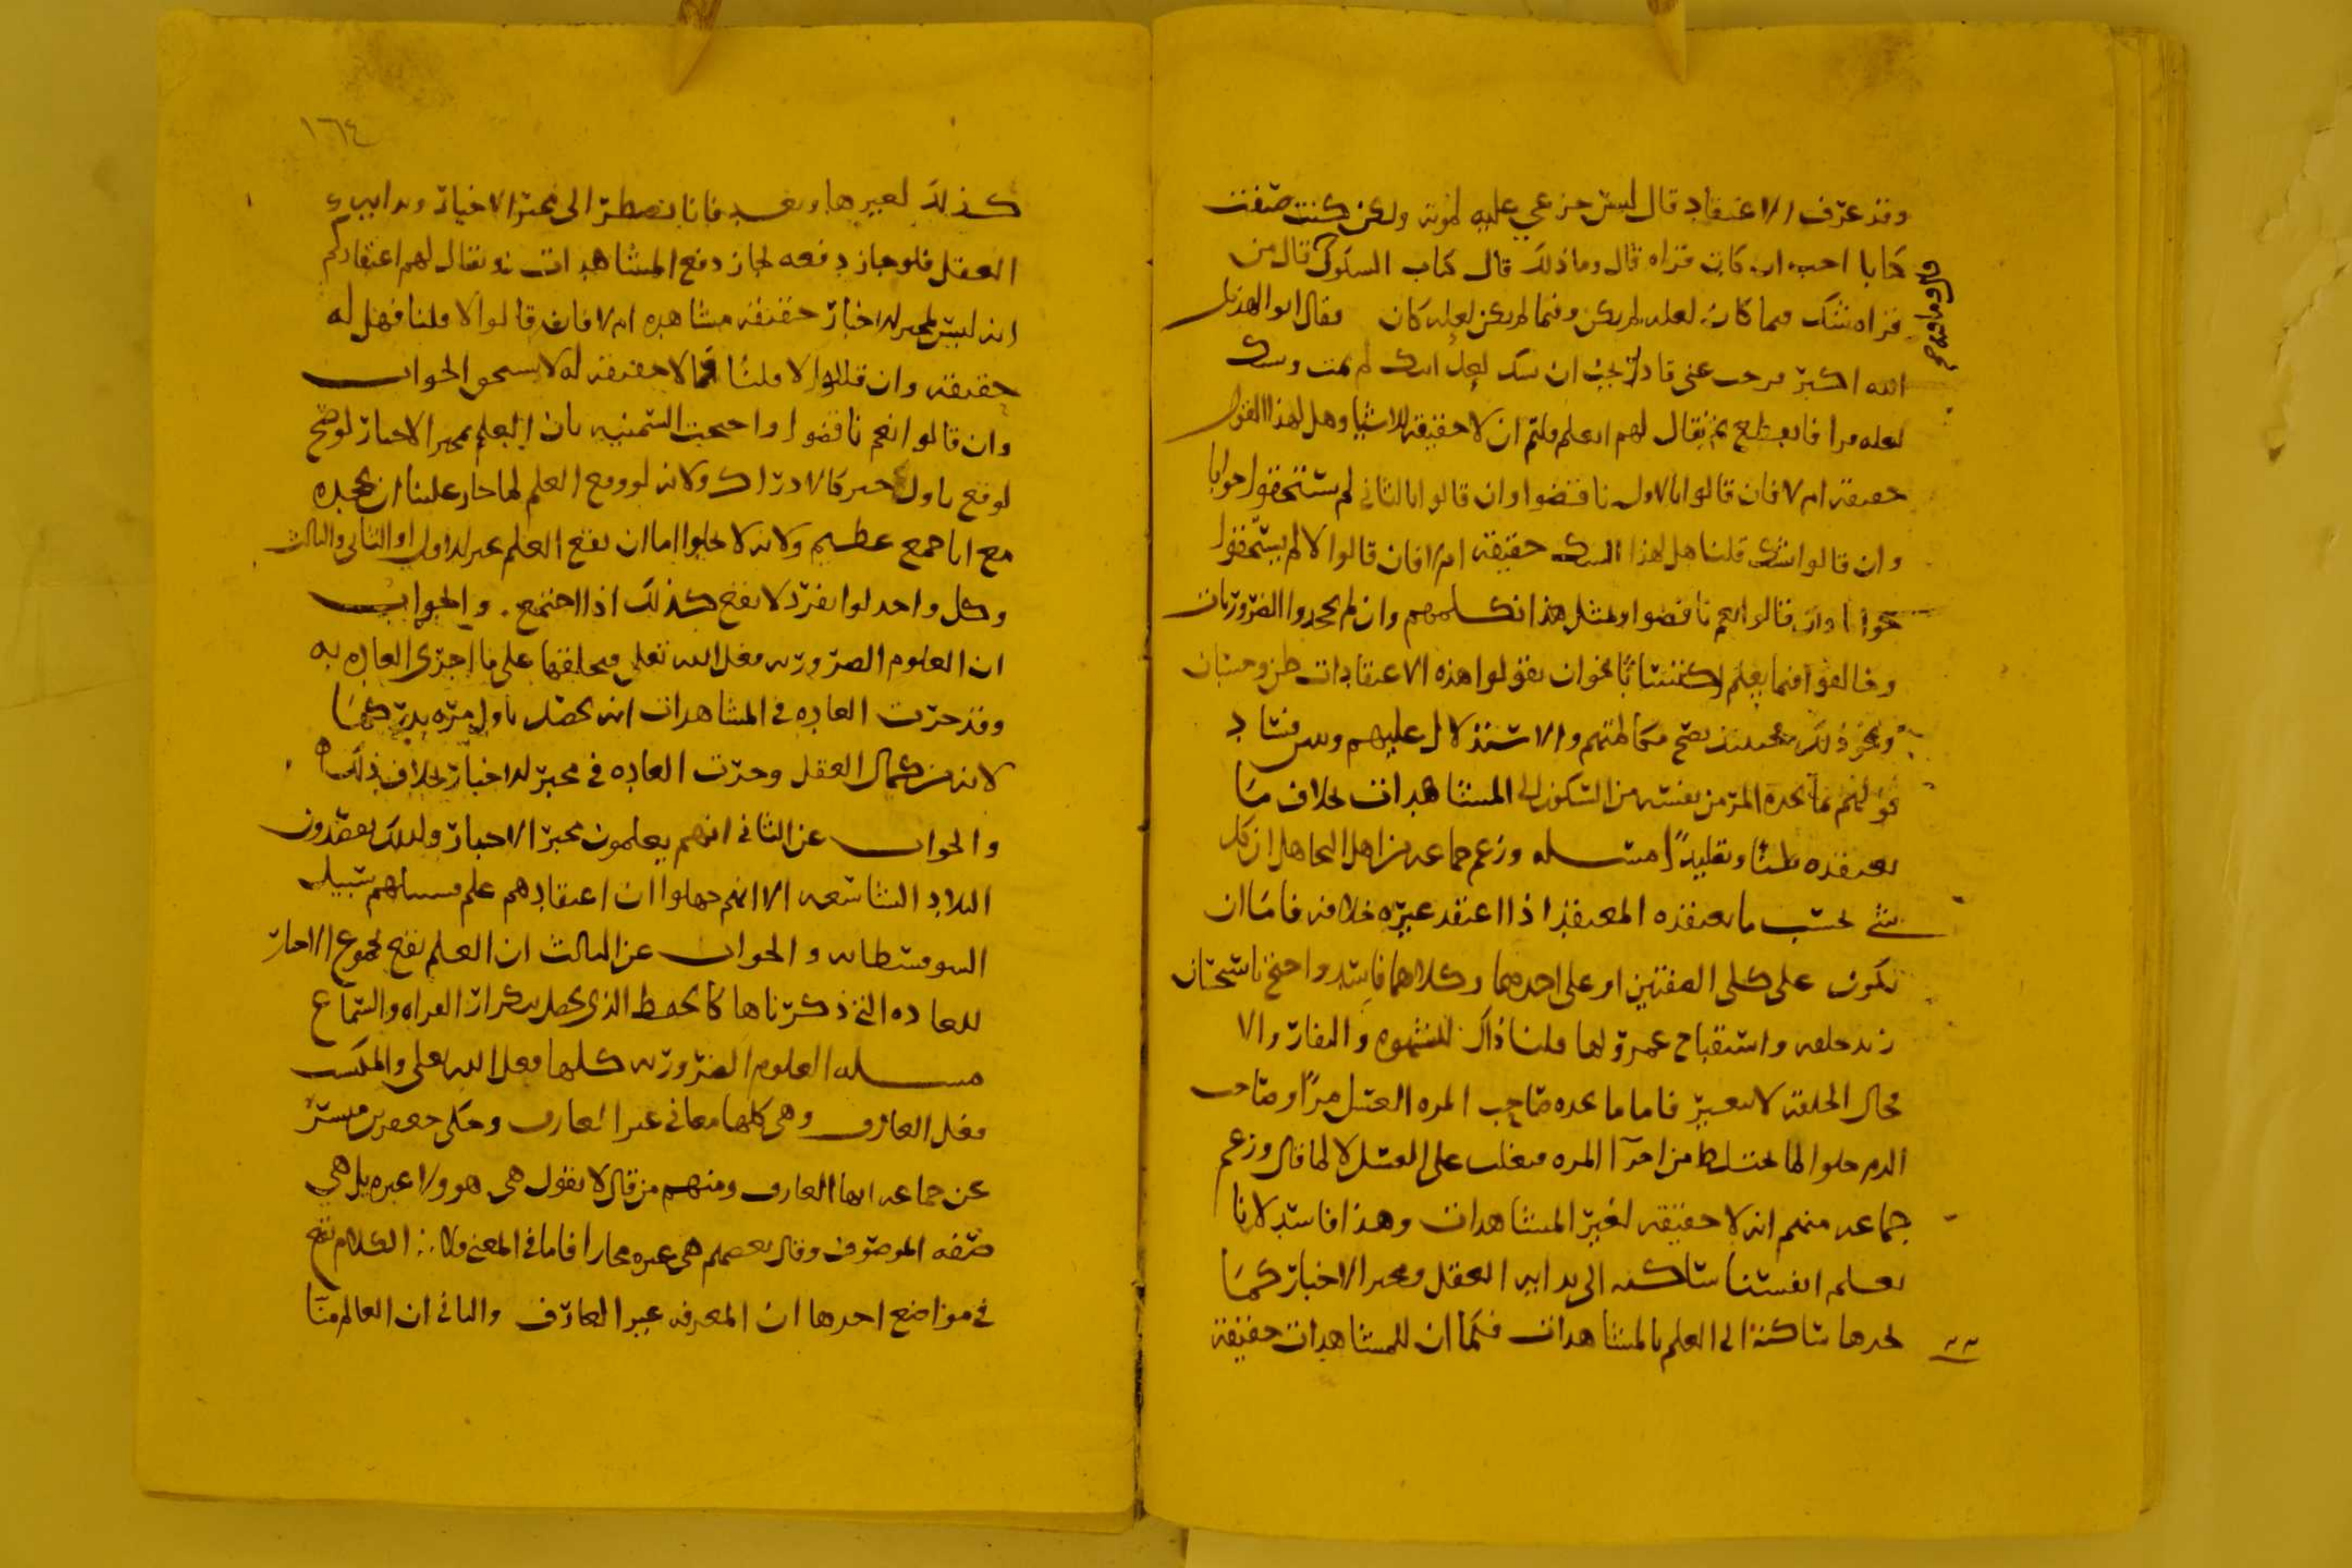 وقد عرف الاعتقاد قال ليس جزعي عليه لموته ولكن كنت صنفت
كتابا احب ان كان قراه قال وما ذلك قال كتاب السكوك قال من
قراه شك فيما كان لعله لم يكن وفيما لم يكن لعله كان فقال ابو الهذيل
الله اكبر عني يجب ان شك لعل ابنك لم يمت وشك
لعله قرا فانقطع ثم يقال لهم اتعلم قلتم ان لا حقيقة للاشيا وهل لهذا القول
حقيقة ام لا فان قالوا بالاول ناقضوا وان قالوا بالثاني لم يستحقوا جوابا
وان قالوا شك قلنا هل لهذا الشك حقيقة ام لا فان قالوا لا لم يستحقوا
جوابا وان قالوا نعم ناقضوا وبمثل هذا نكلمهم وان لم يجحدوا الضرورات
وخالفوا فيما يعلم نحو ان يقولوا هذه الاعتقادات ظن وحسبان
ونحو ذلك فحينئذ يصح مكالمتهم والاستدلال عليهم وبين فساد
قولهم بما يجده المر من نفسه من السكون الى المشاهدات بخلاف ما
يعتقده ظنا وتقليدا مسله وزعم جماعه من اهل التجاهل ان كل
شي بحسب ما يعتقده المعتقد اذا اعتقد غيره خلافه فاما ان
تكون على كلى الصفتين او على احدهما وكلاهما فاسد واحتج باستحسان
زيد خلقه واستقباح عمرو لها قلنا ذاك للشهوه والنفار والا
محال الخلقة لا يتغير فاما ما يجده صاحب المره العسل مرا وصاحب
الدم حلوا لما يختلط من اجزا المره فيغلب على العسل لا لما قال وزعم
جماعه منهم انه لا حقيقه لغير المشاهدات وهذا فاسد لانا
نعلم انفسنا ساكنه الى بدايه العقل ومخبر الاخبار كما
نجدها ساكنة الى العلم بالمشاهدات فكما ان للمشاهدات حقيقة
١٦٤
كذلك لغيرها وبعد فانا نضطر الى مخبر الاخبار وبدايه
العقل فلو جاز دفعه لجاز دفع المشاهدات ويقال لهم اعتقادكم
انه ليس لمخبر الاخبار حقيقة مشاهده ام لا فان قالوا لا قلنا فهل له
حقيقه وان قالوا لا قلنا فما لا حقيقه له لا يستحق الجواب
وان قالوا نعم ناقضوا واحتجت السمنيه بان العلم بمخبر الاخبار لو صح
لوقع باول خبر كالادراك ولانه لو وقع العلم لما جاز علينا ان نجحده
مع انا جمع عظيم ولانه لا يخلوا اما ان يقع العلم عند الاول او الثاني والثالث
وكل واحد لو انفرد لا يقع كذلك اذا اجتمع والجواب
ان العلوم الضرورية فعل الله تعلى فيخلقها على ما اجرى العاده به
وقد جرت العاده في المشاهدات انه يحصل باول مره يدركها
لانه من كمال العقل وجرت العاده في مخبر الاخبار بخلاف ذلك
والجواب عن الثاني انهم يعلمون مخبر الاخبار ولذلك يقصدون
البلاد الشاسعه الا انهم جهلوا ان اعتقادهم علم فسبيلهم سبيل
السوفسطائيه والجواب عن الثالث ان العلم يقع بمجموع الاخبار
للعاده التي ذكرناها كالحفظ الذي يحصل بتكرار القراه والسماع
مسله العلوم الضرورية كلها فعل الله تعلى والمكتسب
فعل العارف وهي كلها معاني غير العارف وحكى جعفر بن مبشر
عن جماعه انها العارف ومنهم من قال لا نقول هي هو ولا غيره بل هي
صفه الموصوف وقال بعضهم هي غيره مجازا فاما في المعنى فلا الكلام يقع
في مواضع احدها ان المعرفه غير العارف والثاني ان العالم منا